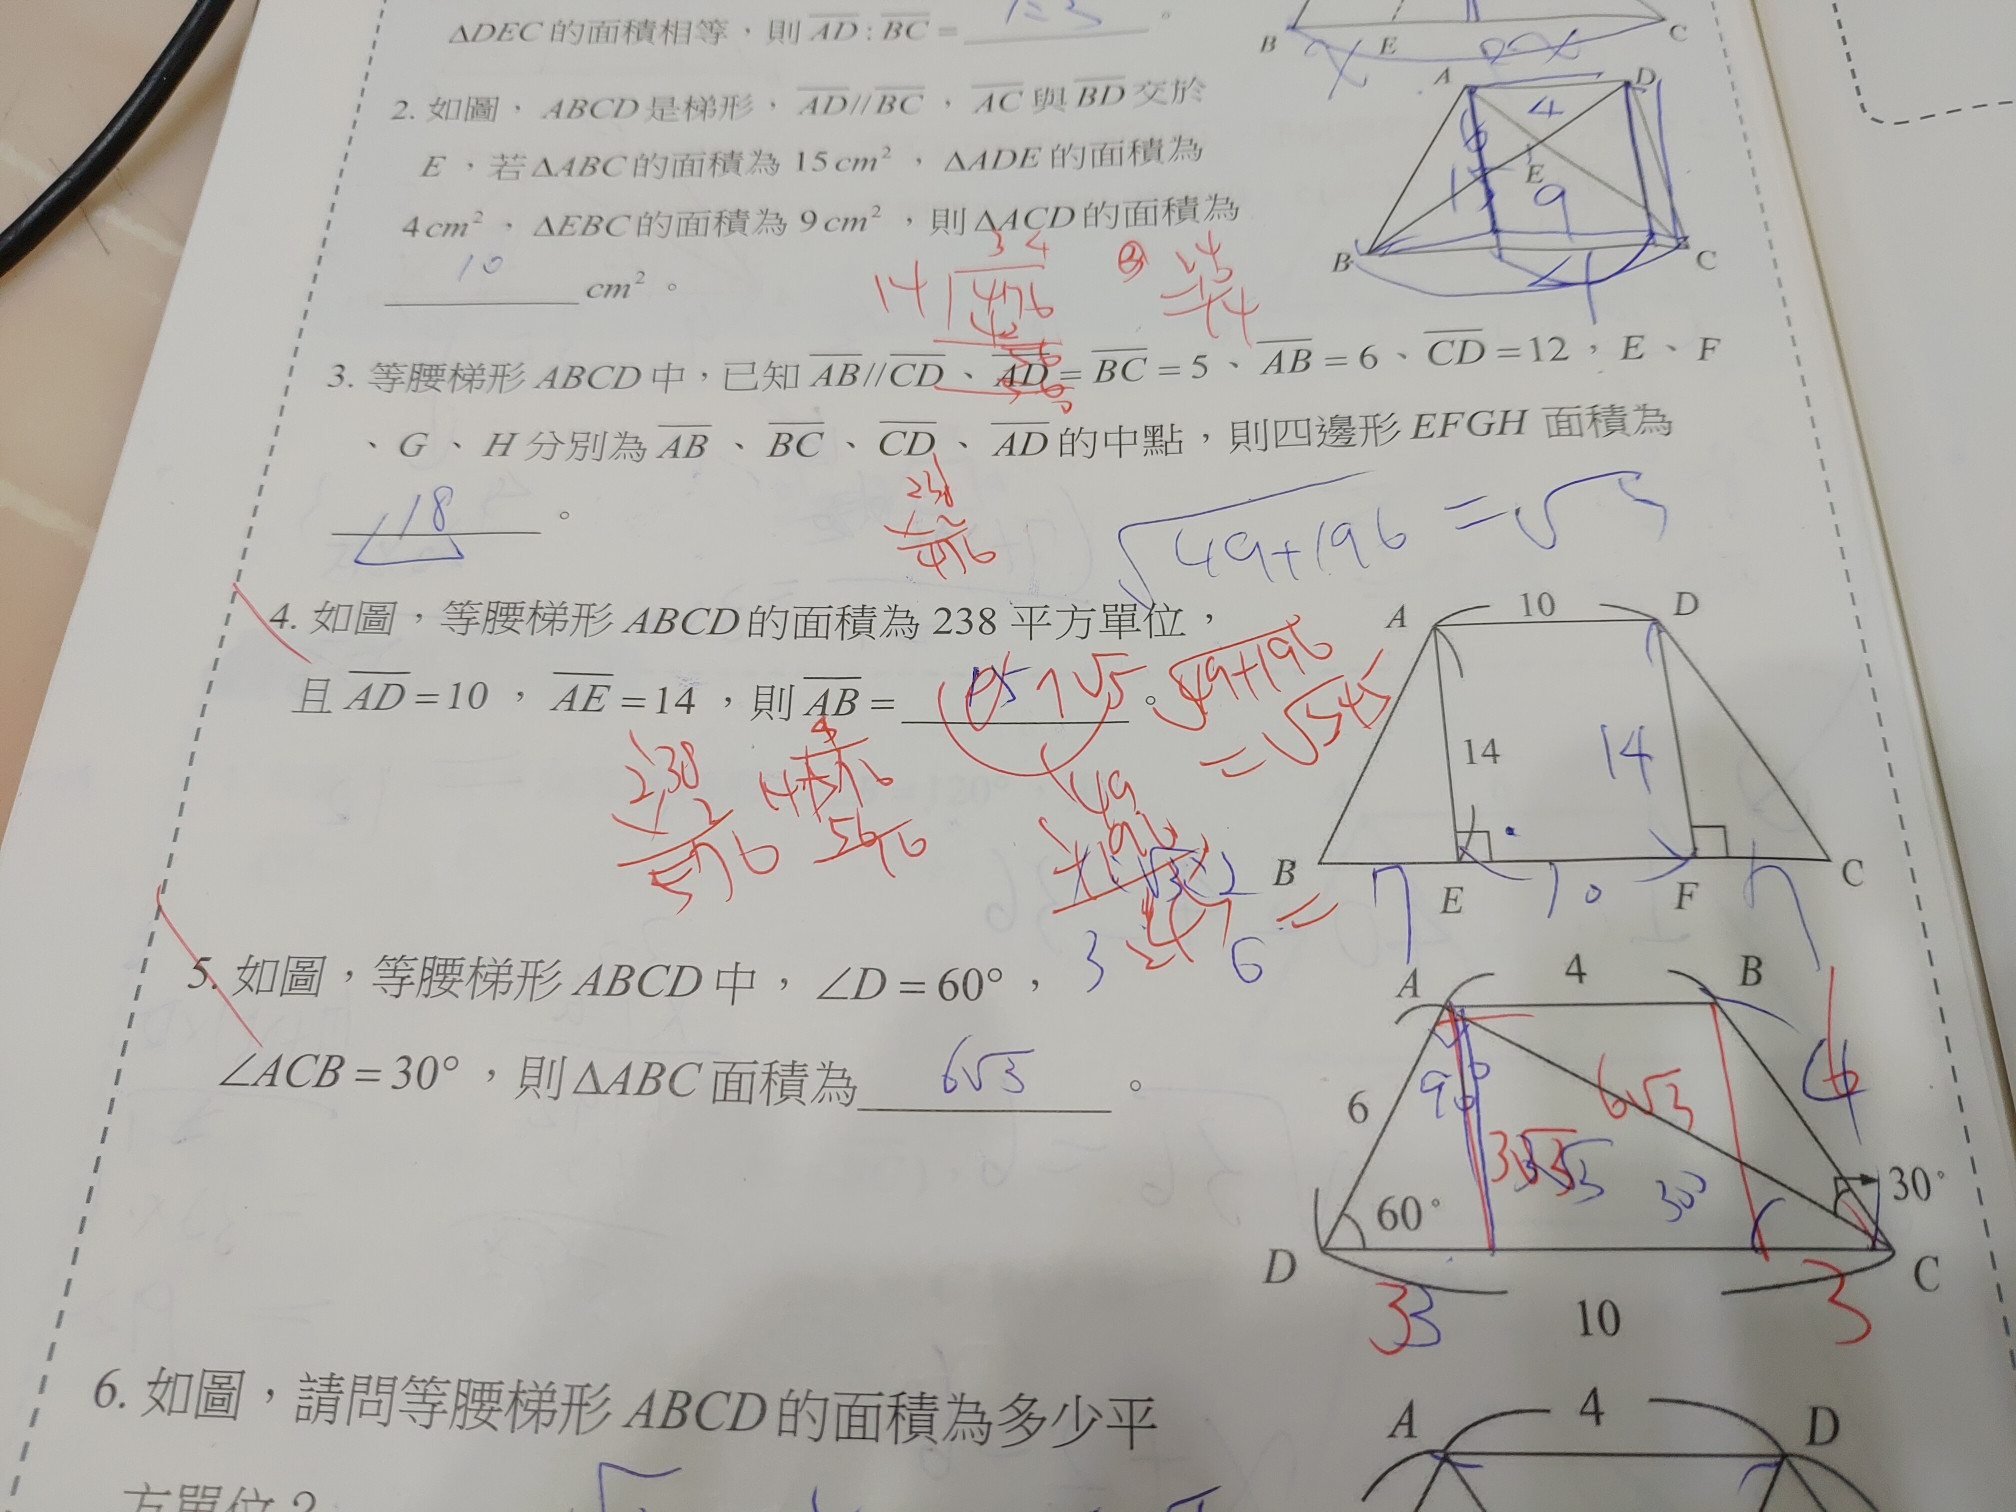 ΔDEC 的面積相等，則 AD : BC = 1:3 。
B E C
x 2x
2. 如圖，ABCD 是梯形，AD//BC，AC 與 BD 交於
E，若 ΔABC 的面積為 15 cm²，ΔADE 的面積為
4 cm²，ΔEBC 的面積為 9 cm²，則 ΔACD 的面積為
10 cm²。
A D
4
6
E
9
B C
34
14 476
42
56
3. 等腰梯形 ABCD 中，已知 AB//CD、AD = BC = 5、AB = 6、CD = 12，E、F
、G、H 分別為 AB、BC、CD、AD 的中點，則四邊形 EFGH 面積為
18 。
238
× 2
476
√49+196 = √
4. 如圖，等腰梯形 ABCD 的面積為 238 平方單位，
且 AD = 10，AE = 14，則 AB = 7√5 。
√49+196
= √245
238
2
49
196
A 10 D
14 14
B E F C
7 10
5. 如圖，等腰梯形 ABCD 中，∠D = 60°，
3 6
∠ACB = 30°，則 ΔABC 面積為 6√3 。
A 4 B
6
90
6√3
3√3
30°
60°
30°
D C
3 3 10 3
6. 如圖，請問等腰梯形 ABCD 的面積為多少平
方單位？
A 4 D